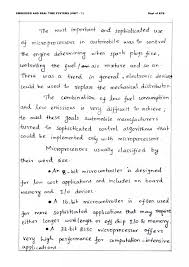 EMBEDDED AND REAL TIME SYSTEMS (UNIT - 1)
Dept of ECE
The most important and sophisticated use
of microprocessors in automobile was to control
the engine determining when spark plugs fire,
controlling the fuel / air mixture and so on.
There was a trend in general, electronic devices
could be used to replace the distributor
The combination of low fuel consumption
and low emissions is very difficult to achieve;
to meet these goals automobile manufacturers
turned to sophisticated control algorithms that
could be implemented only with microprocessors
Microprocessors usually classified by
their word size.
An 8-bit microcontroller is designed
for low cost applications and includes on board
memory and I/O devices.
A 16 bit microcontroller is often used
for more sophisticated applications that may require
either longer word length or off chip I/O & memory.
A 32 bit RISC microprocessor offers
very high performance for computation-intensive
applications.